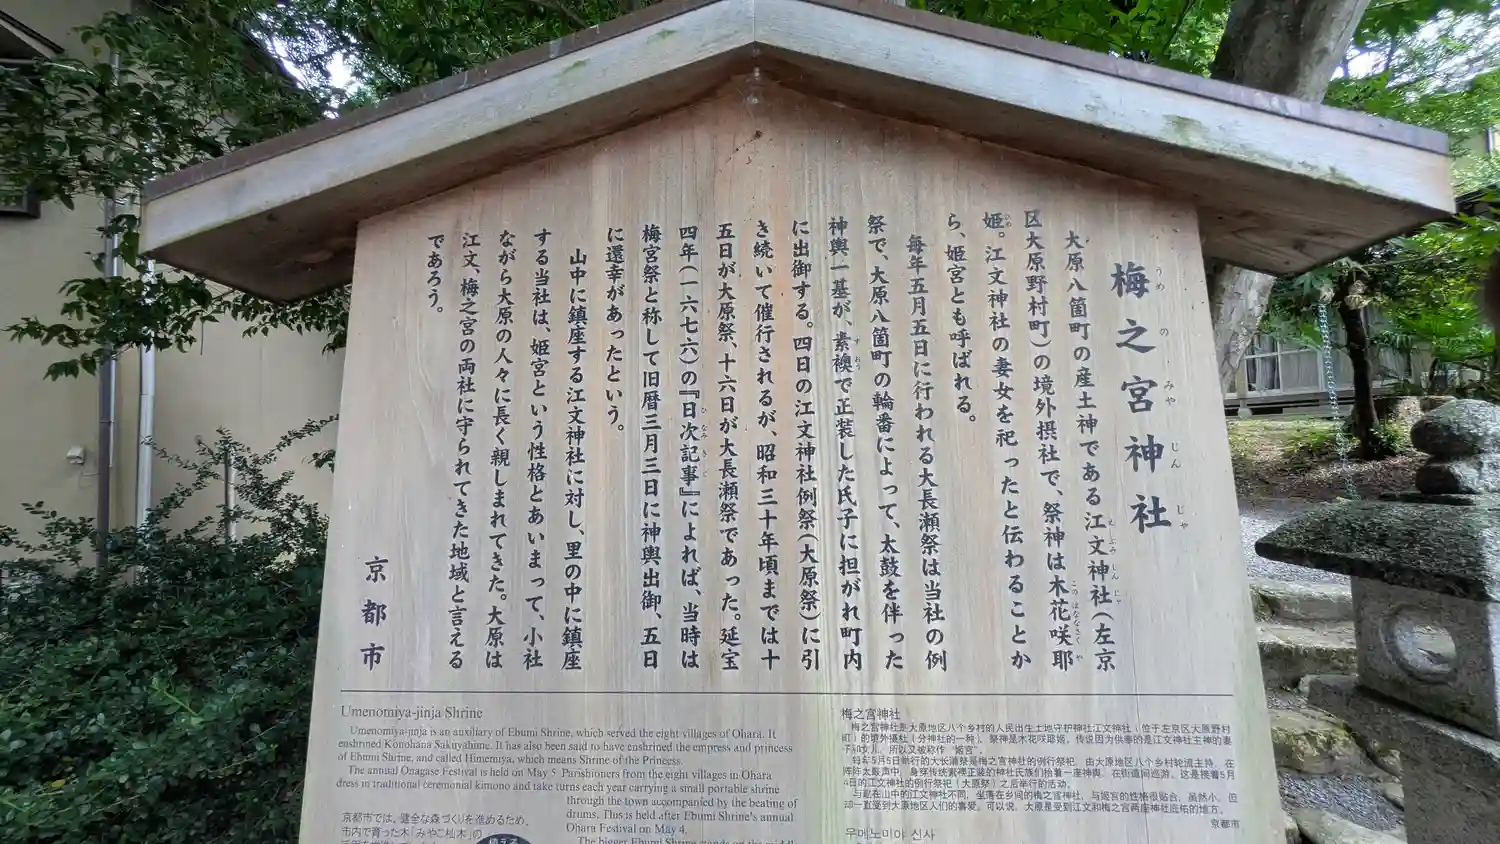 梅之宮神社
うめのみやじんじゃ
大原八箇町の産土神である江文神社（左京
区大原野村町）の境外摂社で、祭神は木花咲耶
姫。江文神社の妻女を祀ったと伝わることか
ら、姫宮とも呼ばれる。
毎年五月五日に行われる大長瀬祭は当社の例
祭で、大原八箇町の輪番によって、太鼓を伴った
神輿一基が、素襖で正装した氏子に担がれ町内
に出御する。四日の江文神社例祭（大原祭）に引
き続いて催行されるが、昭和三十年頃までは十
五日が大原祭、十六日が大長瀬祭であった。延宝
四年（一六七六）の『日次記事』によれば、当時は
梅宮祭と称して旧暦三月三日に神輿出御、五日
に還幸があったという。
山中に鎮座する江文神社に対し、里の中に鎮座
する当社は、姫宮という性格とあいまって、小社
ながら大原の人々に長く親しまれてきた。大原は
江文、梅之宮の両社に守られてきた地域と言える
であろう。
京都市
Umenomiya-jinja Shrine
Umenomiya-jinja is an auxiliary of Ebumi Shrine, which served the eight villages of Ohara. It
enshrined Konohana Sakuyahime. It has also been said to have enshrined the empress and princess
of Ebumi Shrine, and called Himemiya, which means Shrine of the Princess.
The annual Onagase Festival is held on May 5. Parishioners from the eight villages in Ohara
dress in traditional ceremonial kimono and take turns each year carrying a small portable shrine
through the town accompanied by the beating of
drums. This is held after Ebumi Shrine's annual
Ohara Festival on May 4.
The bigger Ebumi Shrine stands on the
京都市では、健全な森づくりを進めるため、
市内で育った木「みやこ杣木」の
梅之宫神社
梅之宫神社是大原地区八个乡村的人民出生土地守护神社江文神社（位于左京区大原野村
町）的境外摄社（分神社的一种）。祭神是木花咲耶姬，传说因为供奉的是江文神社主神的妻
子和女儿，所以又被称作“姬宫”。
每年5月5日举行的大长濑祭是梅之宫神社的例行祭祀，由大原地区八个乡村轮流主持，在
阵阵太鼓声中，身穿传统素襖正装的神社氏族们抬着一座神舆，在街道间巡游。这是接着5月
4日的江文神社的例行祭祀（大原祭）之后举行的活动。
与着在山中的江文神社不同，坐落在乡间的梅之宫神社，与姬宫的性格很贴合，虽然小，但
却一直受到大原地区人们的喜爱。可以说，大原是受到江文和梅之宫两座神社庇佑的地方。
京都市
우메노미야 신사